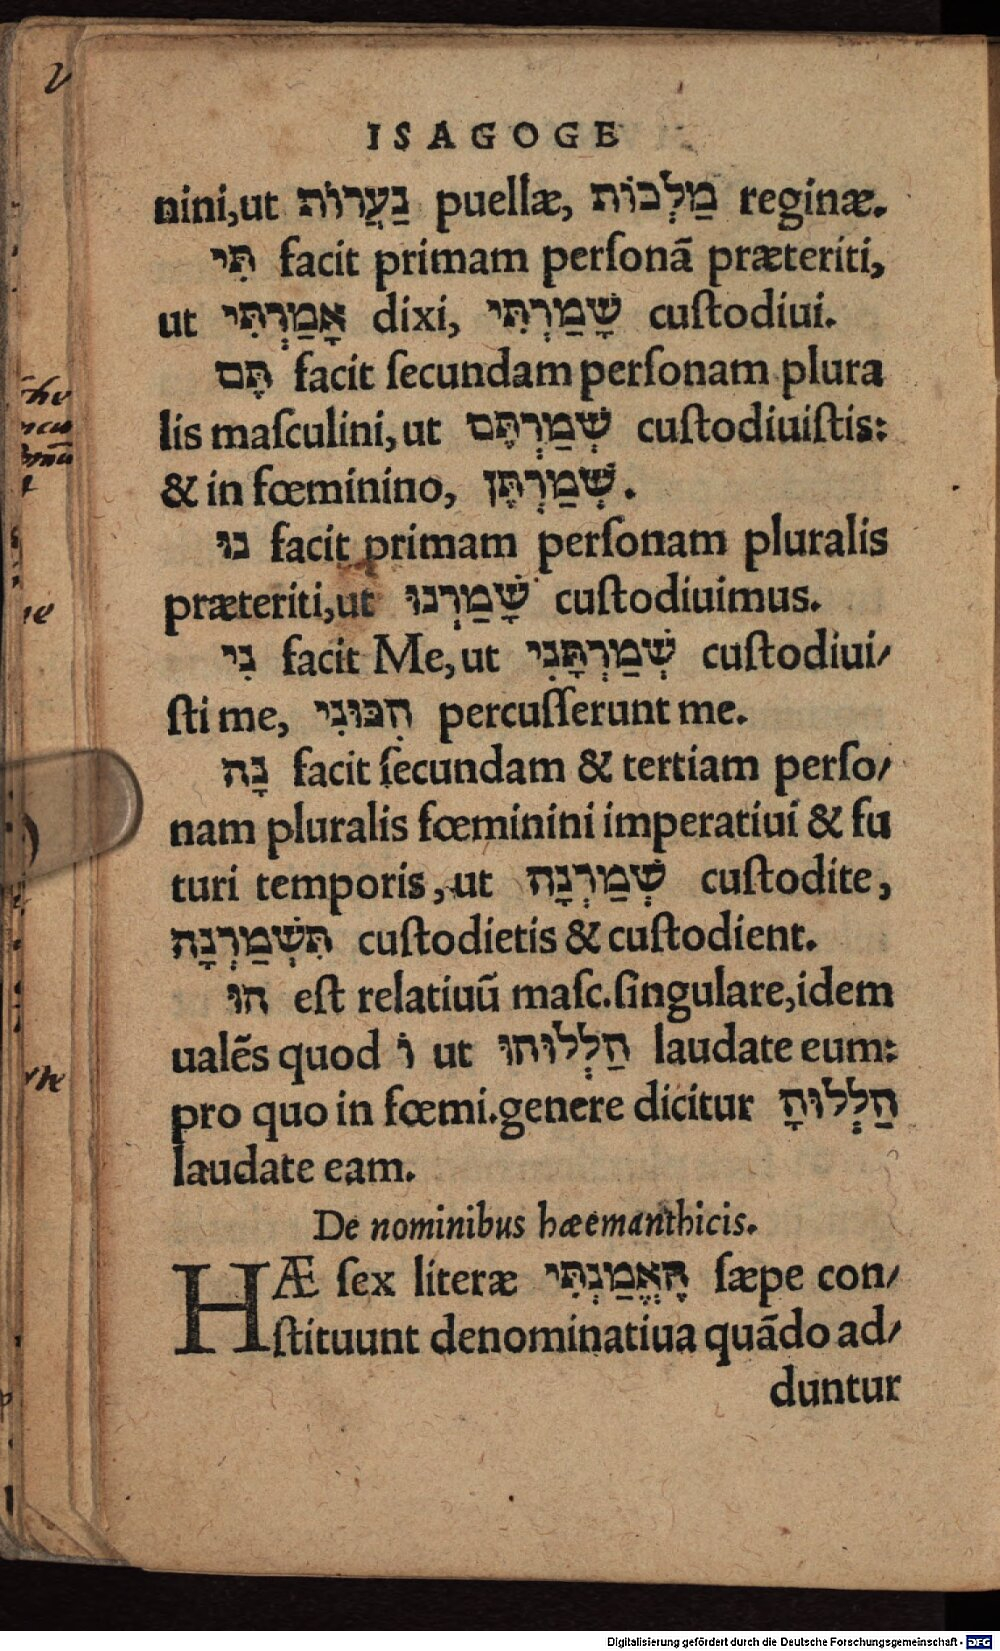 ISAGOGE
nini,ut נַעֲרוֹת puellæ, מַלְכּוֹת reginæ.
תִּי facit primam perſonã præteriti,
ut אָמַרְתִּי dixi, שָׁמַרְתִּי cuſtodiui.
תֶּם facit ſecundam perſonam plura
lis maſculini, ut שְׁמַרְתֶּם cuſtodiuiſtis:
& in fœminino, שְׁמַרְתֶּן.
נוּ facit primam perſonam pluralis
præteriti,ut שָׁמַרְנוּ cuſtodiuimus.
נִי facit Me, ut שְׁמַרְתָּנִי cuſtodiui/
ſti me, הִכּוּנִי percuſſerunt me.
נָה facit ſecundam & tertiam perſo/
nam pluralis fœminini imperatiui & fu
turi temporis, ut שְׁמַרְנָה cuſtodite,
תִּשְׁמַרְנָה cuſtodietis & cuſtodient.
הוּ eſt relatiuũ maſc.ſingulare,idem
ualẽs quod וֹ ut הַלְלוּהוּ laudate eum:
pro quo in fœmi.genere dicitur הַלְלוּהָ
laudate eam.
De nominibus hæemanthicis.
HÆ ſex literæ הֶאֱמַנְתִּי ſæpe con/
ſtituunt denominatiua quãdo ad/
duntur
Digitalisierung gefördert durch die Deutsche Forschungsgemeinschaft - DFG